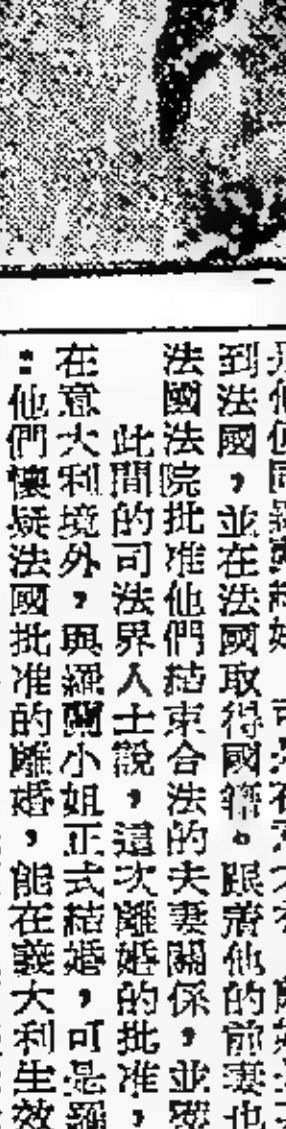 到法國，並在法國取得國籍。跟着他的前妻也
法國法院批准他們結束合法的夫妻關係，並
此間的司法界人士說，這次離婚的批准，
在意大利境外，與羅蘭小姐正式結婚，可是羅
：他們懷疑法國批准的離婚，能在義大利生效